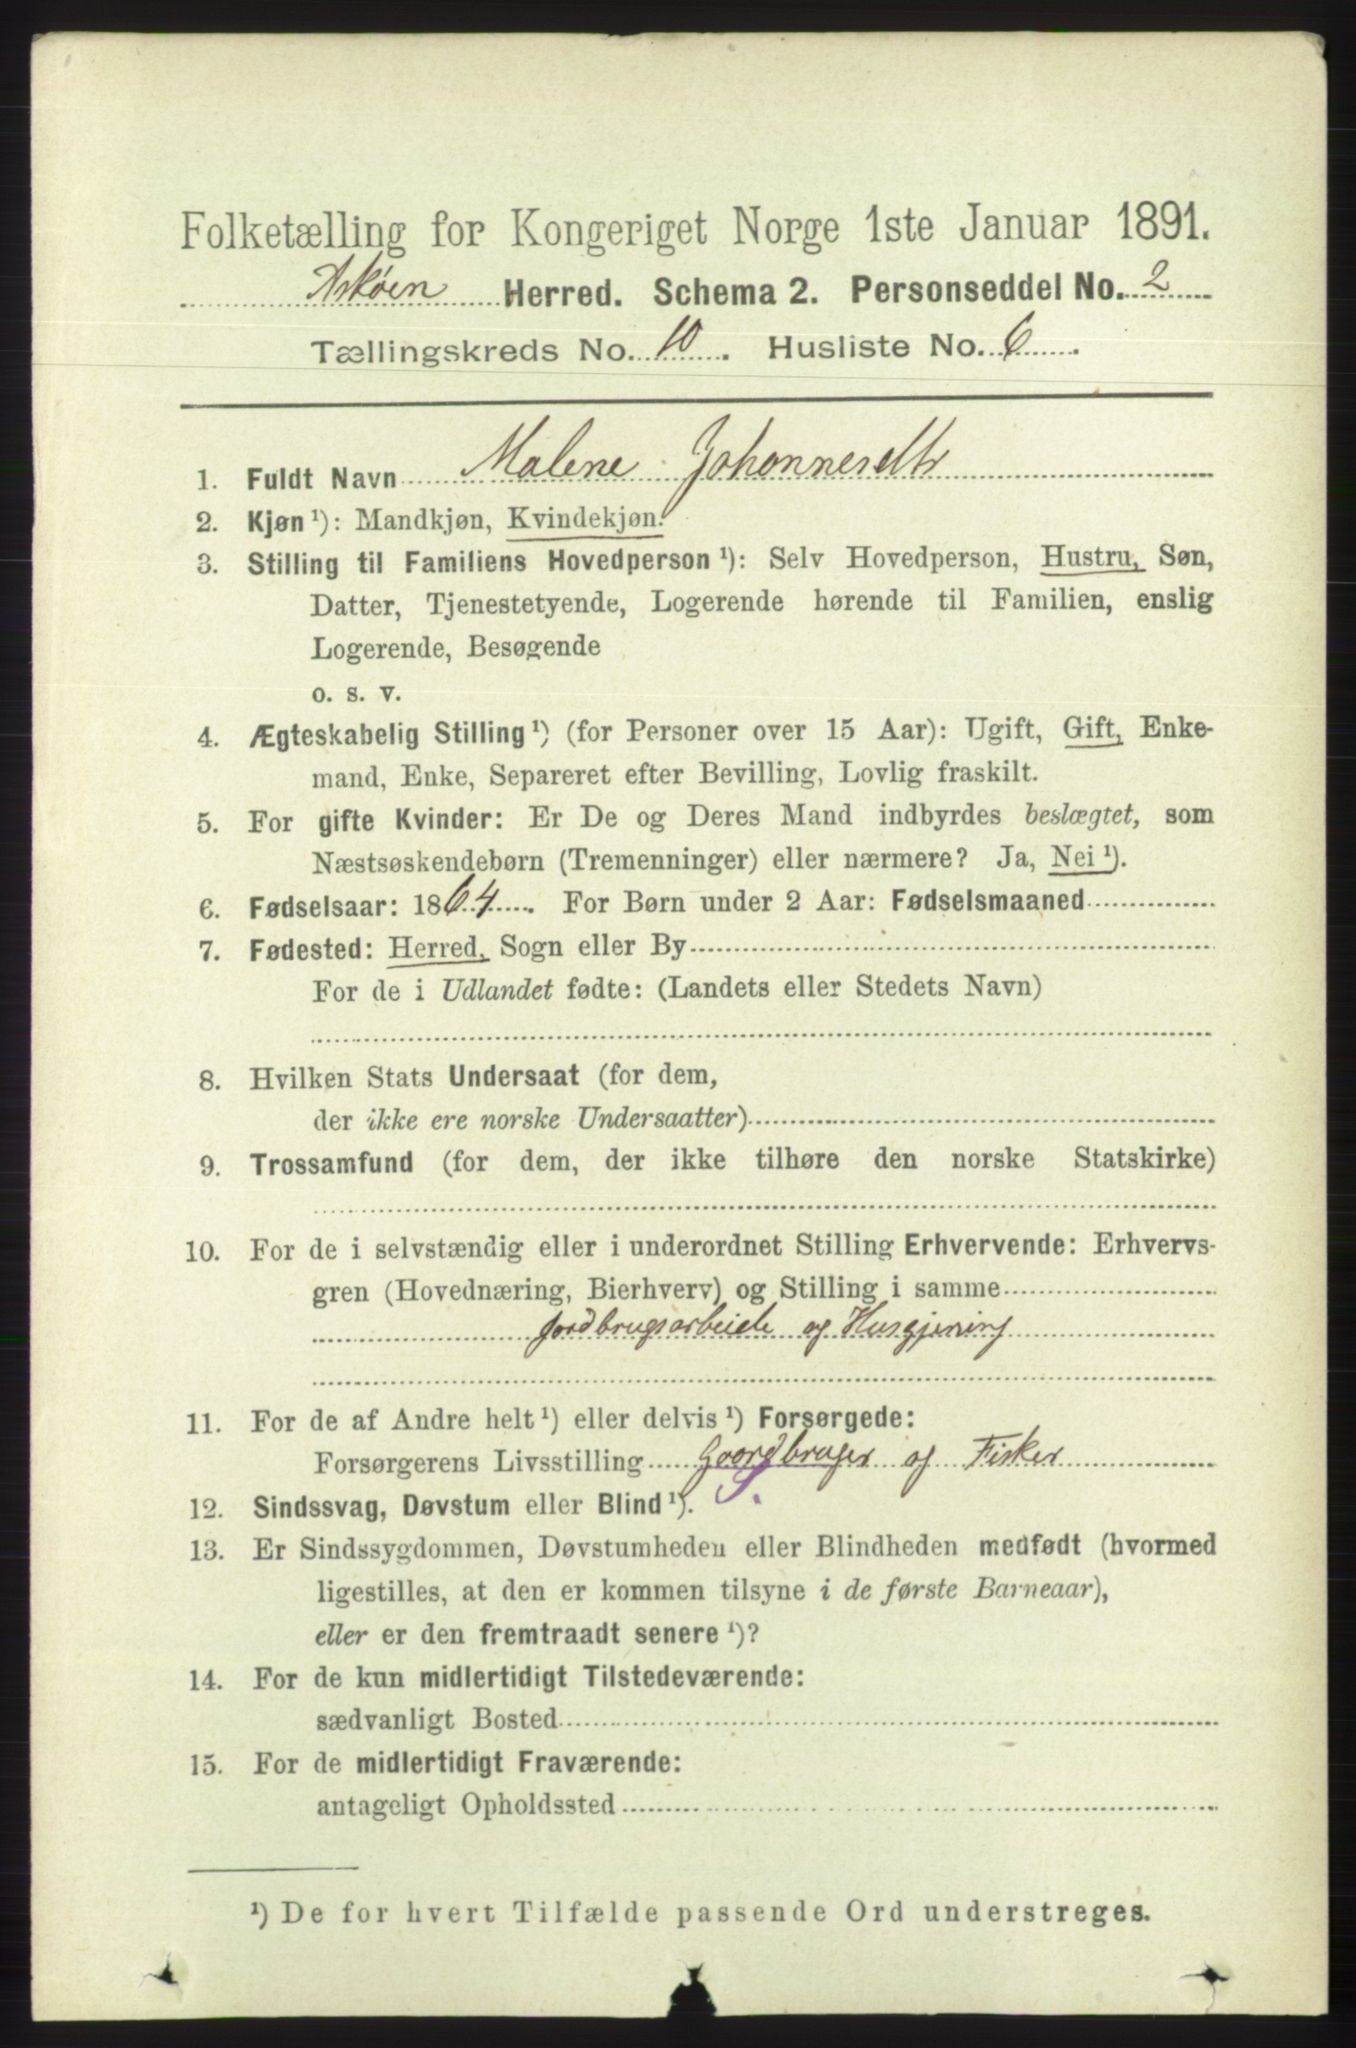 Folketælling for Kongeriget Norge 1ste Januar 1891.
Askøen Herred. Schema 2. Personseddel No. 2
Tællingskreds No. 10. Husliste No. 6.
1. Fuldt Navn Malene Johannesdtr
2. Kjøn ¹): Mandkjøn, Kvindekjøn.
3. Stilling til Familiens Hovedperson ¹): Selv Hovedperson, Hustru, Søn,
Datter, Tjenestetyende, Logerende hørende til Familien, enslig
Logerende, Besøgende
o. s. v.
4. Ægteskabelig Stilling ¹) (for Personer over 15 Aar): Ugift, Gift, Enke-
mand, Enke, Separeret efter Bevilling, Lovlig fraskilt.
5. For gifte Kvinder: Er De og Deres Mand indbyrdes beslægtet, som
Næstsøskendebørn (Tremenninger) eller nærmere? Ja, Nei ¹).
6. Fødselsaar: 1864. For Børn under 2 Aar: Fødselsmaaned
7. Fødested: Herred, Sogn eller By
For de i Udlandet fødte: (Landets eller Stedets Navn)
8. Hvilken Stats Undersaat (for dem,
der ikke ere norske Undersaatter)
9. Trossamfund (for dem, der ikke tilhøre den norske Statskirke)
10. For de i selvstændig eller i underordnet Stilling Erhvervende: Erhvervs-
gren (Hovednæring, Bierhverv) og Stilling i samme
Jordbrugsarbeide og Husgjerning
11. For de af Andre helt ¹) eller delvis ¹) Forsørgede:
Forsørgerens Livsstilling Gaardbruger og Fisker
S.
12. Sindssvag, Døvstum eller Blind ¹).
13. Er Sindssygdommen, Døvstumheden eller Blindheden medfødt (hvormed
ligestilles, at den er kommen tilsyne i de første Barneaar),
eller er den fremtraadt senere ¹)?
14. For de kun midlertidigt Tilstedeværende:
sædvanligt Bosted
15. For de midlertidigt Fraværende:
antageligt Opholdssted
¹) De for hvert Tilfælde passende Ord understreges.